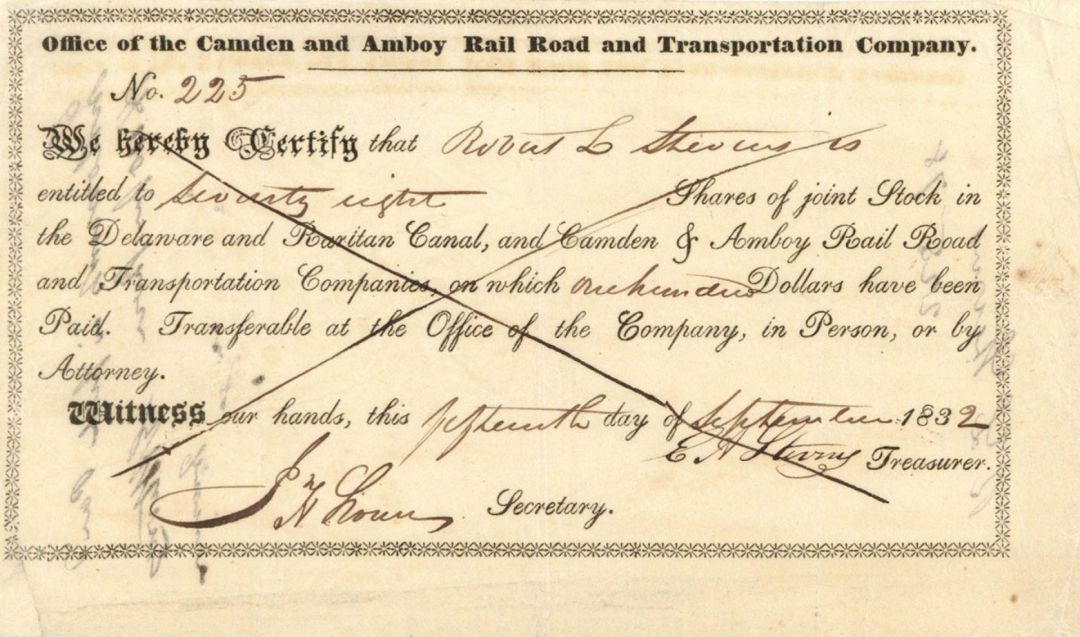 Office of the Camden and Amboy Rail Road and Transportation Company.
No. 225
We hereby Certify that Robert L Stevens is
entitled to seventy eight Shares of joint Stock in
the Delaware and Raritan Canal, and Camden & Amboy Rail Road
and Transportation Companies, on which one hundred Dollars have been
Paid. Transferable at the Office of the Company, in Person, or by
Attorney.
Witness our hands, this fifteenth day of September 1832
E A Stevens Treasurer.
Secretary.